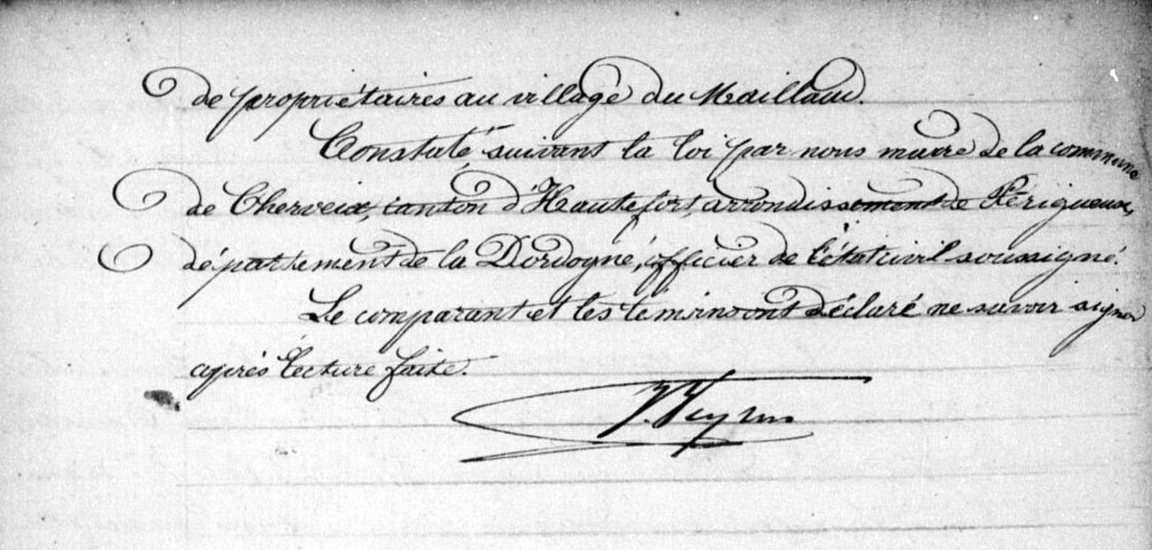 de propriétaires au village du Maillaud.
Constaté, suivant la loi par nous maire de la commune
de Cherveix, canton d'Hautefort, arrondissement de Périgueux,
département de la Dordogne, officier de l'état civil soussigné.
Le comparant et les témoins ont déclaré ne savoir signer
après lecture faite.